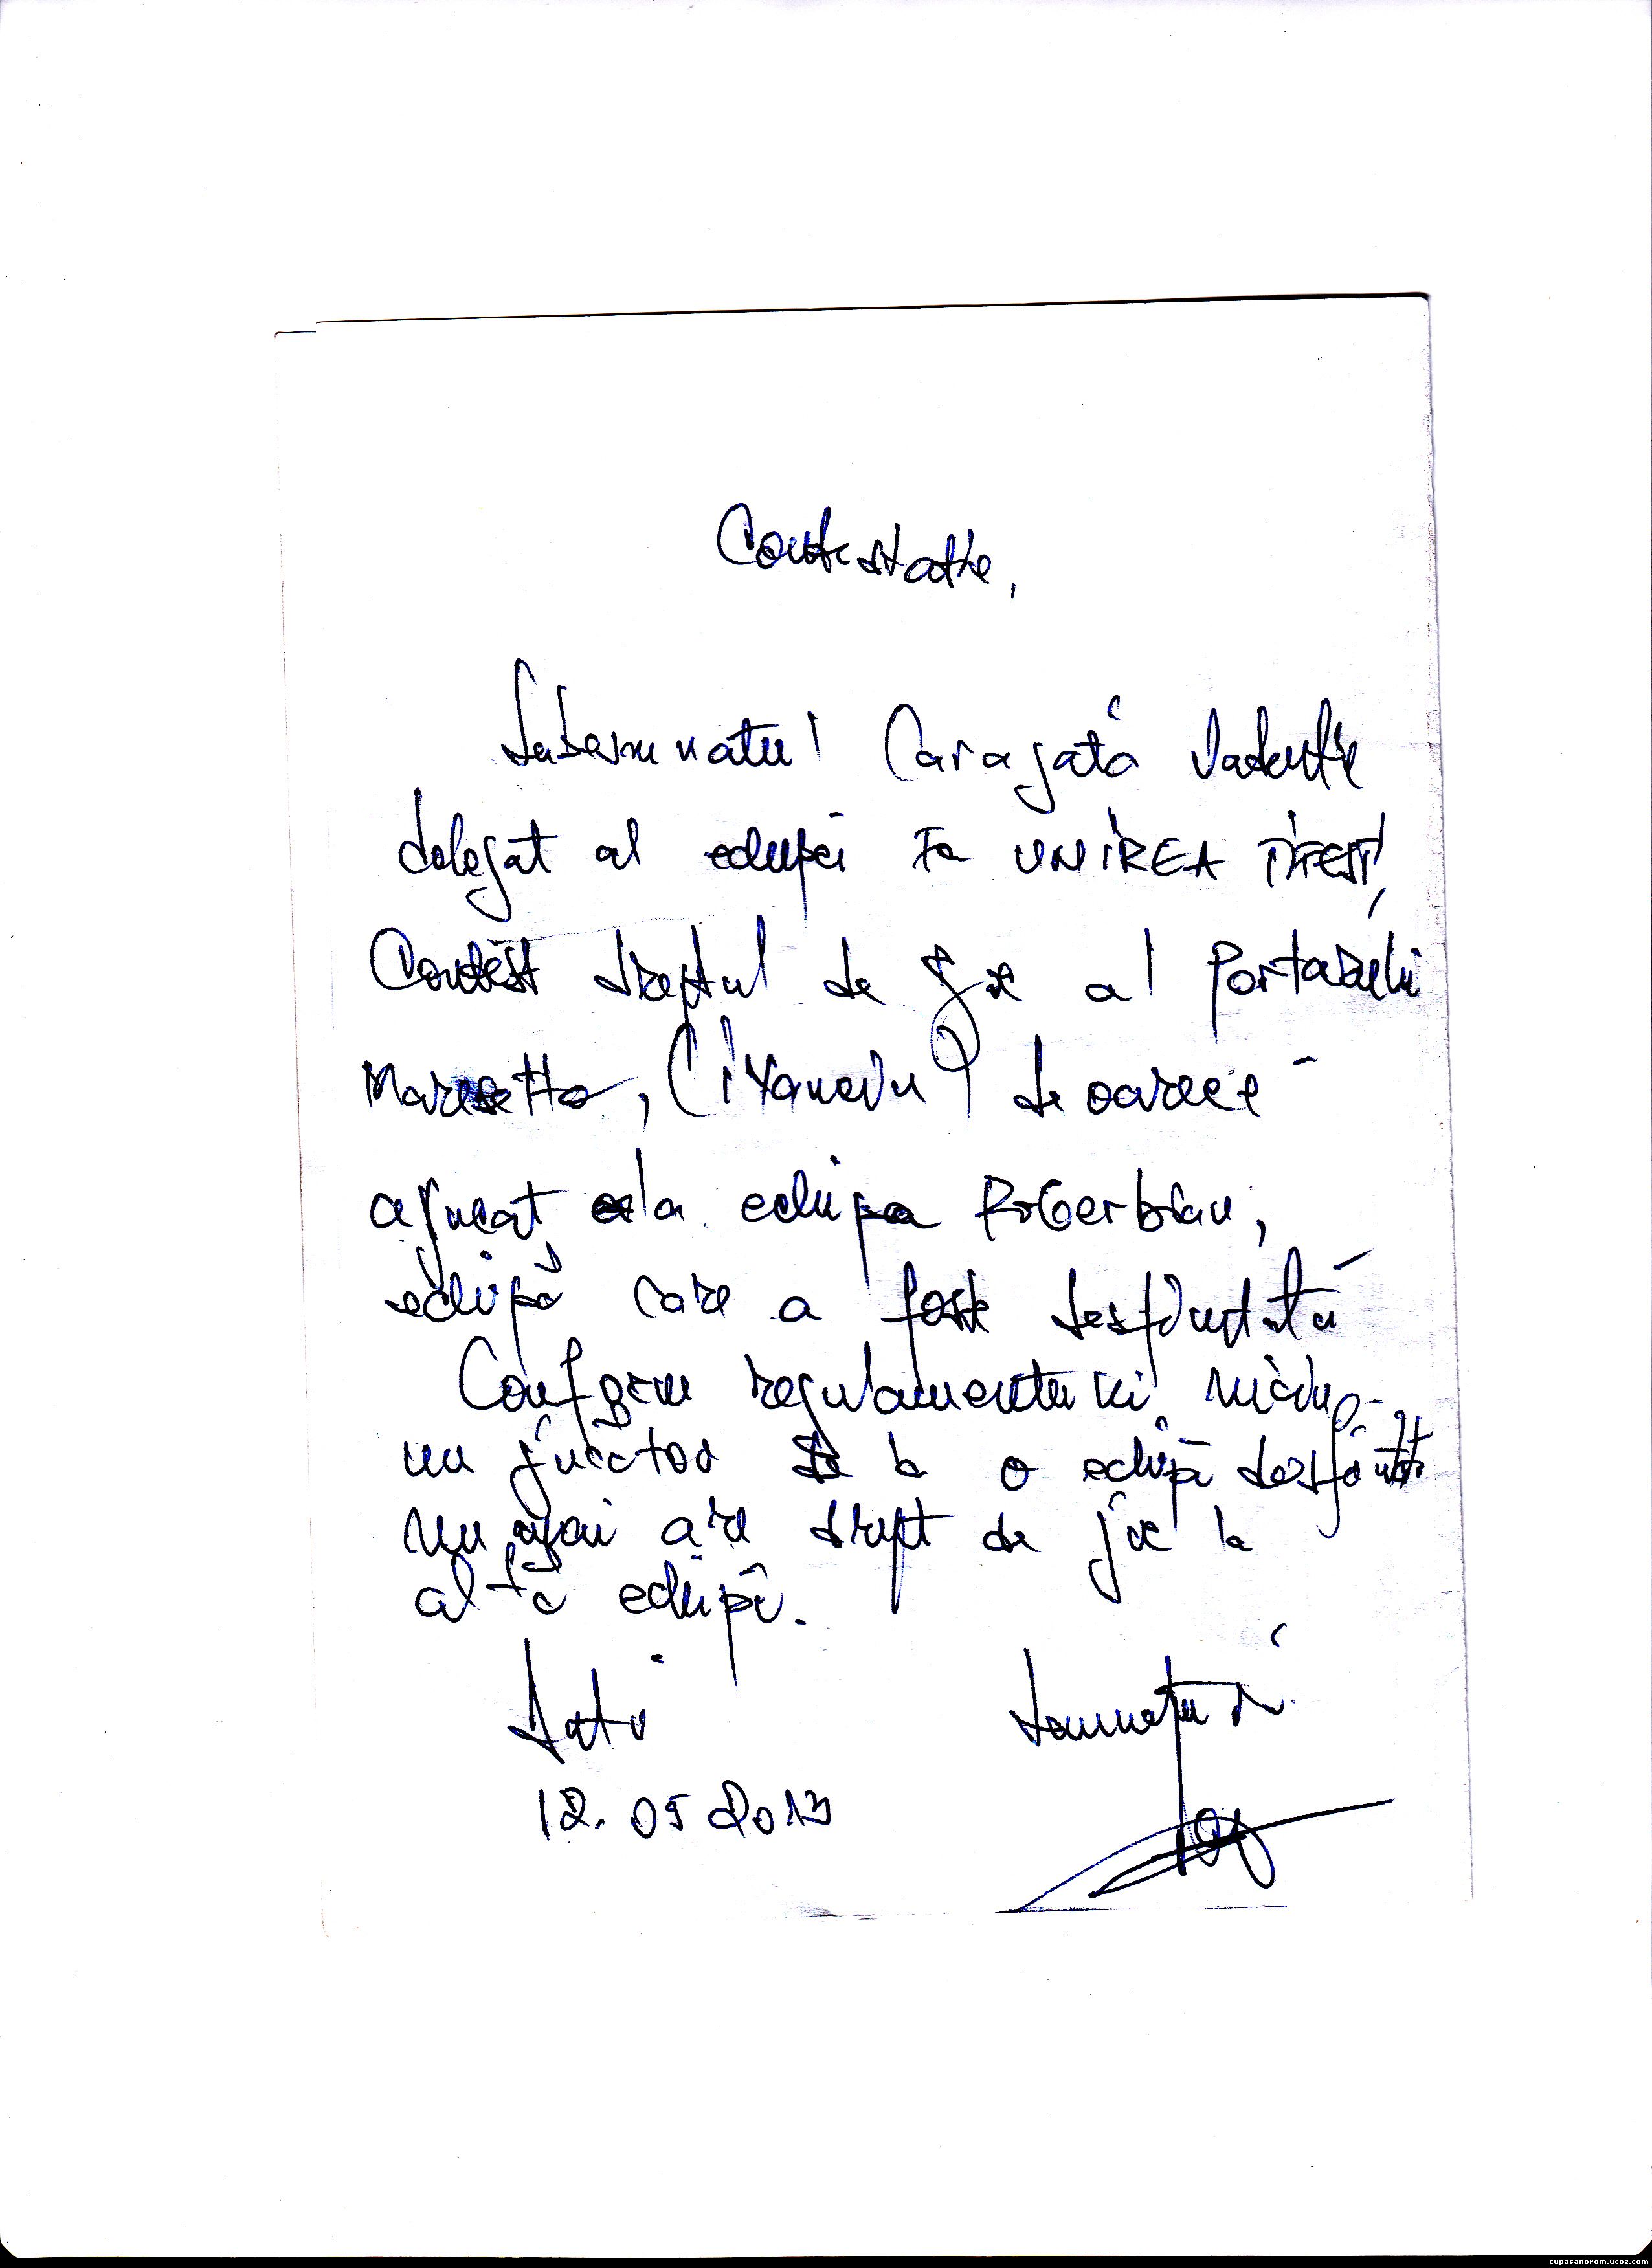 Contestatie,
Subsemnatul Caragață Valentin
delegat al echipei Fc UNIREA
Contest dreptul de joc al Portarului
, (Citanovu) deoarece
a jucat la echipa RoGerbiau,
echipă care a fost desființată
Conform regulamentului nici
un jucător de la o echipă desființată
nu mai are drept de joc la
altă echipă.
Data Semnătura
12.05 2013
cupasanorom.ucoz.com